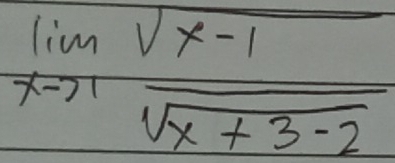 lim √x-1
x→1 √x+3-2